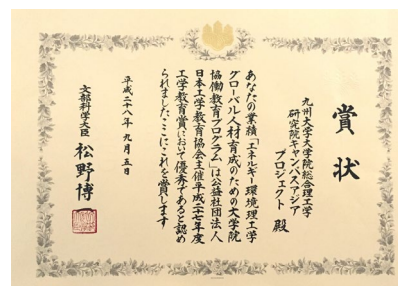 賞状
九州大学大学院総合理工学
研究院キャンパスアジア
プロジェクト 殿
あなたの業績「エネルギー環境理工学
グローバル人材育成のための大学院
協働教育プログラム」は公益社団法人
日本工学教育協会主催平成二十七年度
工学教育賞において優秀であると認め
られましたここにこれを賞します
平成二十八年九月五日
文部科学大臣 松野博